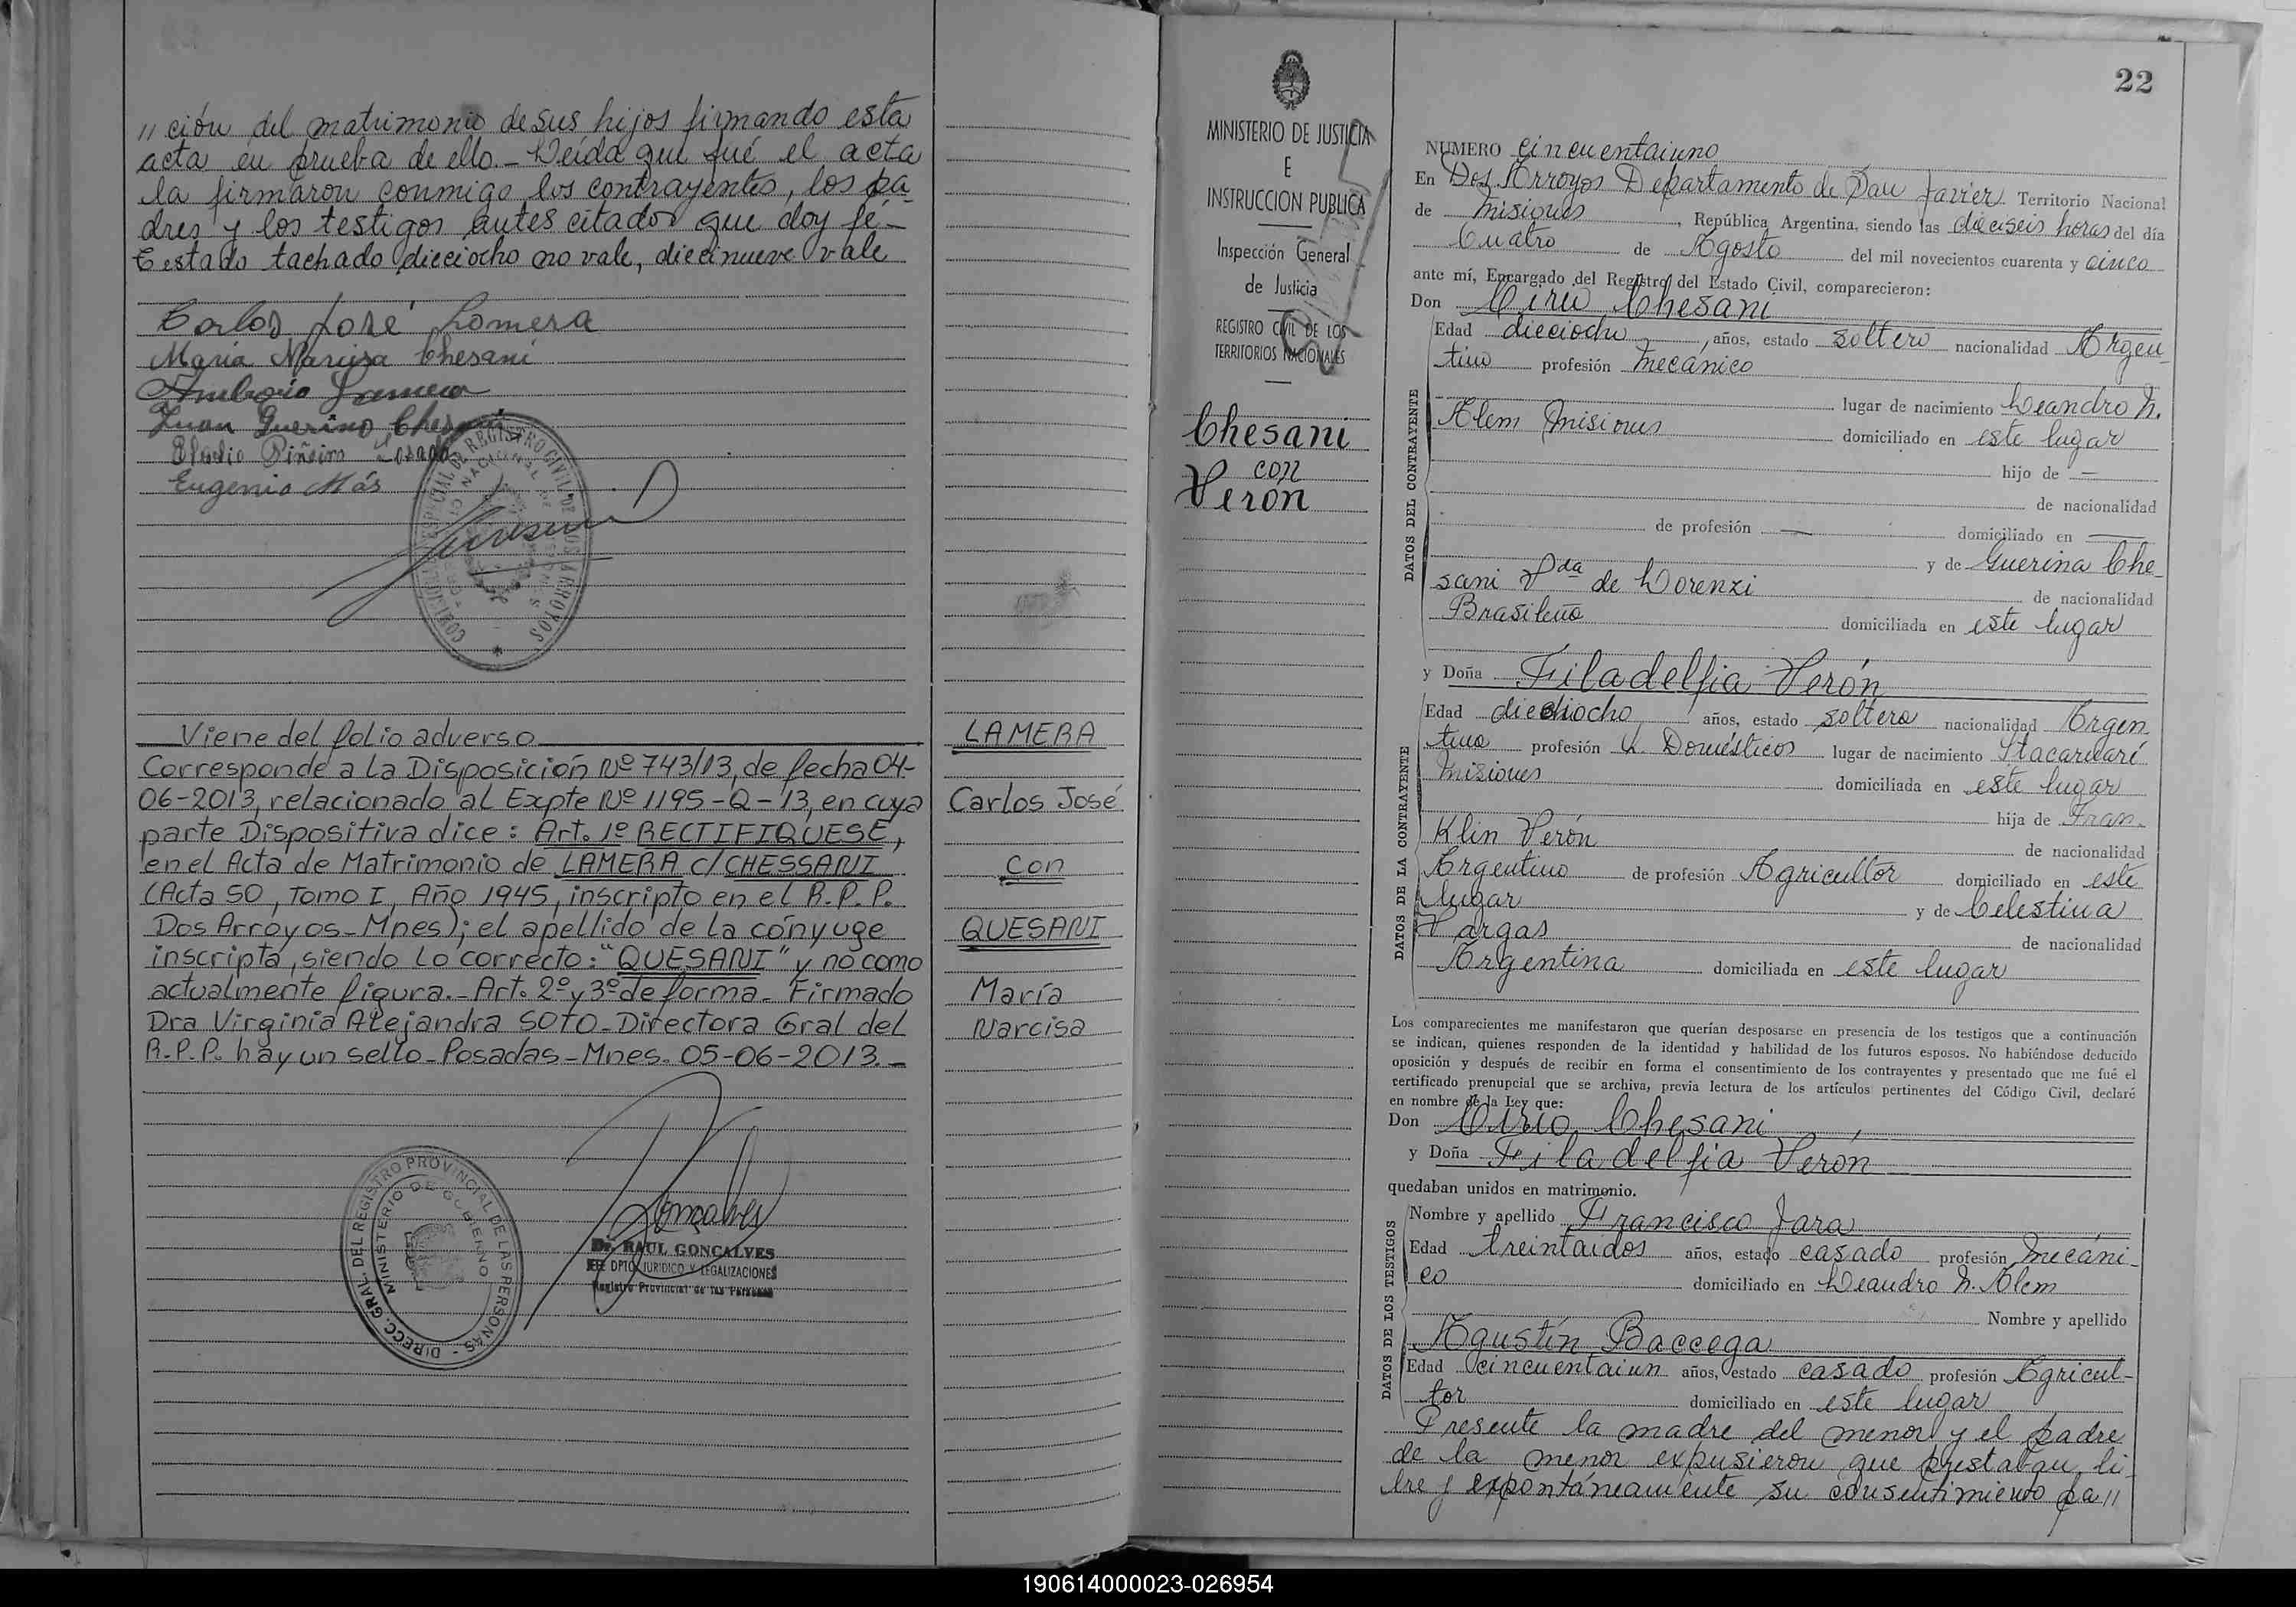 "ción del matrimonio de sus hijos firmando esta
acta en prueba de ello.- Leída que fué el acta
la firmaron conmigo los contrayentes, los pa-
dres y los testigos antes citados que doy fé.-
Testado tachado dieciocho no vale, diecinueve vale
Carlos José Lamera
María Narcisa Chesani
Ambrosio Lamera
Juan Guerino Chesani
Eladio Piñeiro Losada
Eugenio Más
Viene del folio adverso
Corresponde a La Disposición Nº 743/13, de fecha 04-
06-2013, relacionado al Expte Nº 1195-Q-13, en cuya
parte Dispositiva dice: Art. 1º RECTIFIQUESE,
en el Acta de Matrimonio de LAMERA c/ CHESSANI
(Acta 50, Tomo I, Año 1945, inscripto en el R.P.P.
Dos Arroyos-Mnes); el apellido de la cónyuge
inscripta, siendo lo correcto: "QUESANI" y no como
actualmente figura.- Art. 2º y 3º de forma. Firmado
Dra Virginia Alejandra SOTO-Directora Gral del
R.P.P. hay un sello-Posadas-Mnes. 05-06-2013.-
DIRECC. GRAL. DEL REGISTRO PROVINCIAL DE LAS PERSONAS
MINISTERIO DE GOBIERNO
Dr. RAUL GONÇALVES
JEFE DPTO. JURIDICO Y LEGALIZACIONES
Registro Provincial de las Personas
LAMERA
Carlos José
con
QUESANI
María
Narcisa
MINISTERIO DE JUSTICIA
E
INSTRUCCION PUBLICA
Inspección General
de Justicia
REGISTRO CIVIL DE LOS
TERRITORIOS NACIONALES
Chesani
con
Verón
22
NUMERO cincuentaiuno
En Dos Arroyos Departamento de San Javier Territorio Nacional
de Misiones, República Argentina, siendo las dieciseis horas del día
Cuatro de Agosto del mil novecientos cuarenta y cinco
ante mí, Encargado del Registro del Estado Civil, comparecieron:
Don Cirio Chesani
DATOS DEL CONTRAYENTE
Edad dieciocho, años, estado soltero nacionalidad Argen-
tino profesión Mecánico
lugar de nacimiento Leandro N.
Alem Misiones domiciliado en este lugar
hijo de —
de nacionalidad
de profesión — domiciliado en —
y de Guerina Che-
sani Vda de Lorenzi de nacionalidad
Brasileña domiciliada en este lugar
y Doña Filadelfia Verón
DATOS DE LA CONTRAYENTE
Edad dieciocho años, estado soltera nacionalidad Argen
tina profesión L. Domésticos lugar de nacimiento Itacaruaré
Misiones domiciliada en este lugar
hija de Fran-
Klin Verón de nacionalidad
Argentino de profesión Agricultor domiciliado en este
lugar y de Celestina
Vargas de nacionalidad
Argentina domiciliada en este lugar
Los comparecientes me manifestaron que querían desposarse en presencia de los testigos que a continuación
se indican, quienes responden de la identidad y habilidad de los futuros esposos. No habiéndose deducido
oposición y después de recibir en forma el consentimiento de los contrayentes y presentado que me fué el
certificado prenupcial que se archiva, previa lectura de los artículos pertinentes del Código Civil, declaré
en nombre de la Ley que:
Don Cirio Chesani
y Doña Filadelfia Verón
quedaban unidos en matrimonio.
DATOS DE LOS TESTIGOS
Nombre y apellido Francisco Jara
Edad treintaidos años, estado casado profesión Mecáni-
co domiciliado en Leandro N. Alem
Nombre y apellido
Agustín Baccega
Edad cincuentaiun años, estado casado profesión Agricul-
tor domiciliado en este lugar
Presente la madre del menor y el padre
de la menor expusieron que prestaban li-
bre y expontáneamente su consentimiento pa"
190614000023-026954